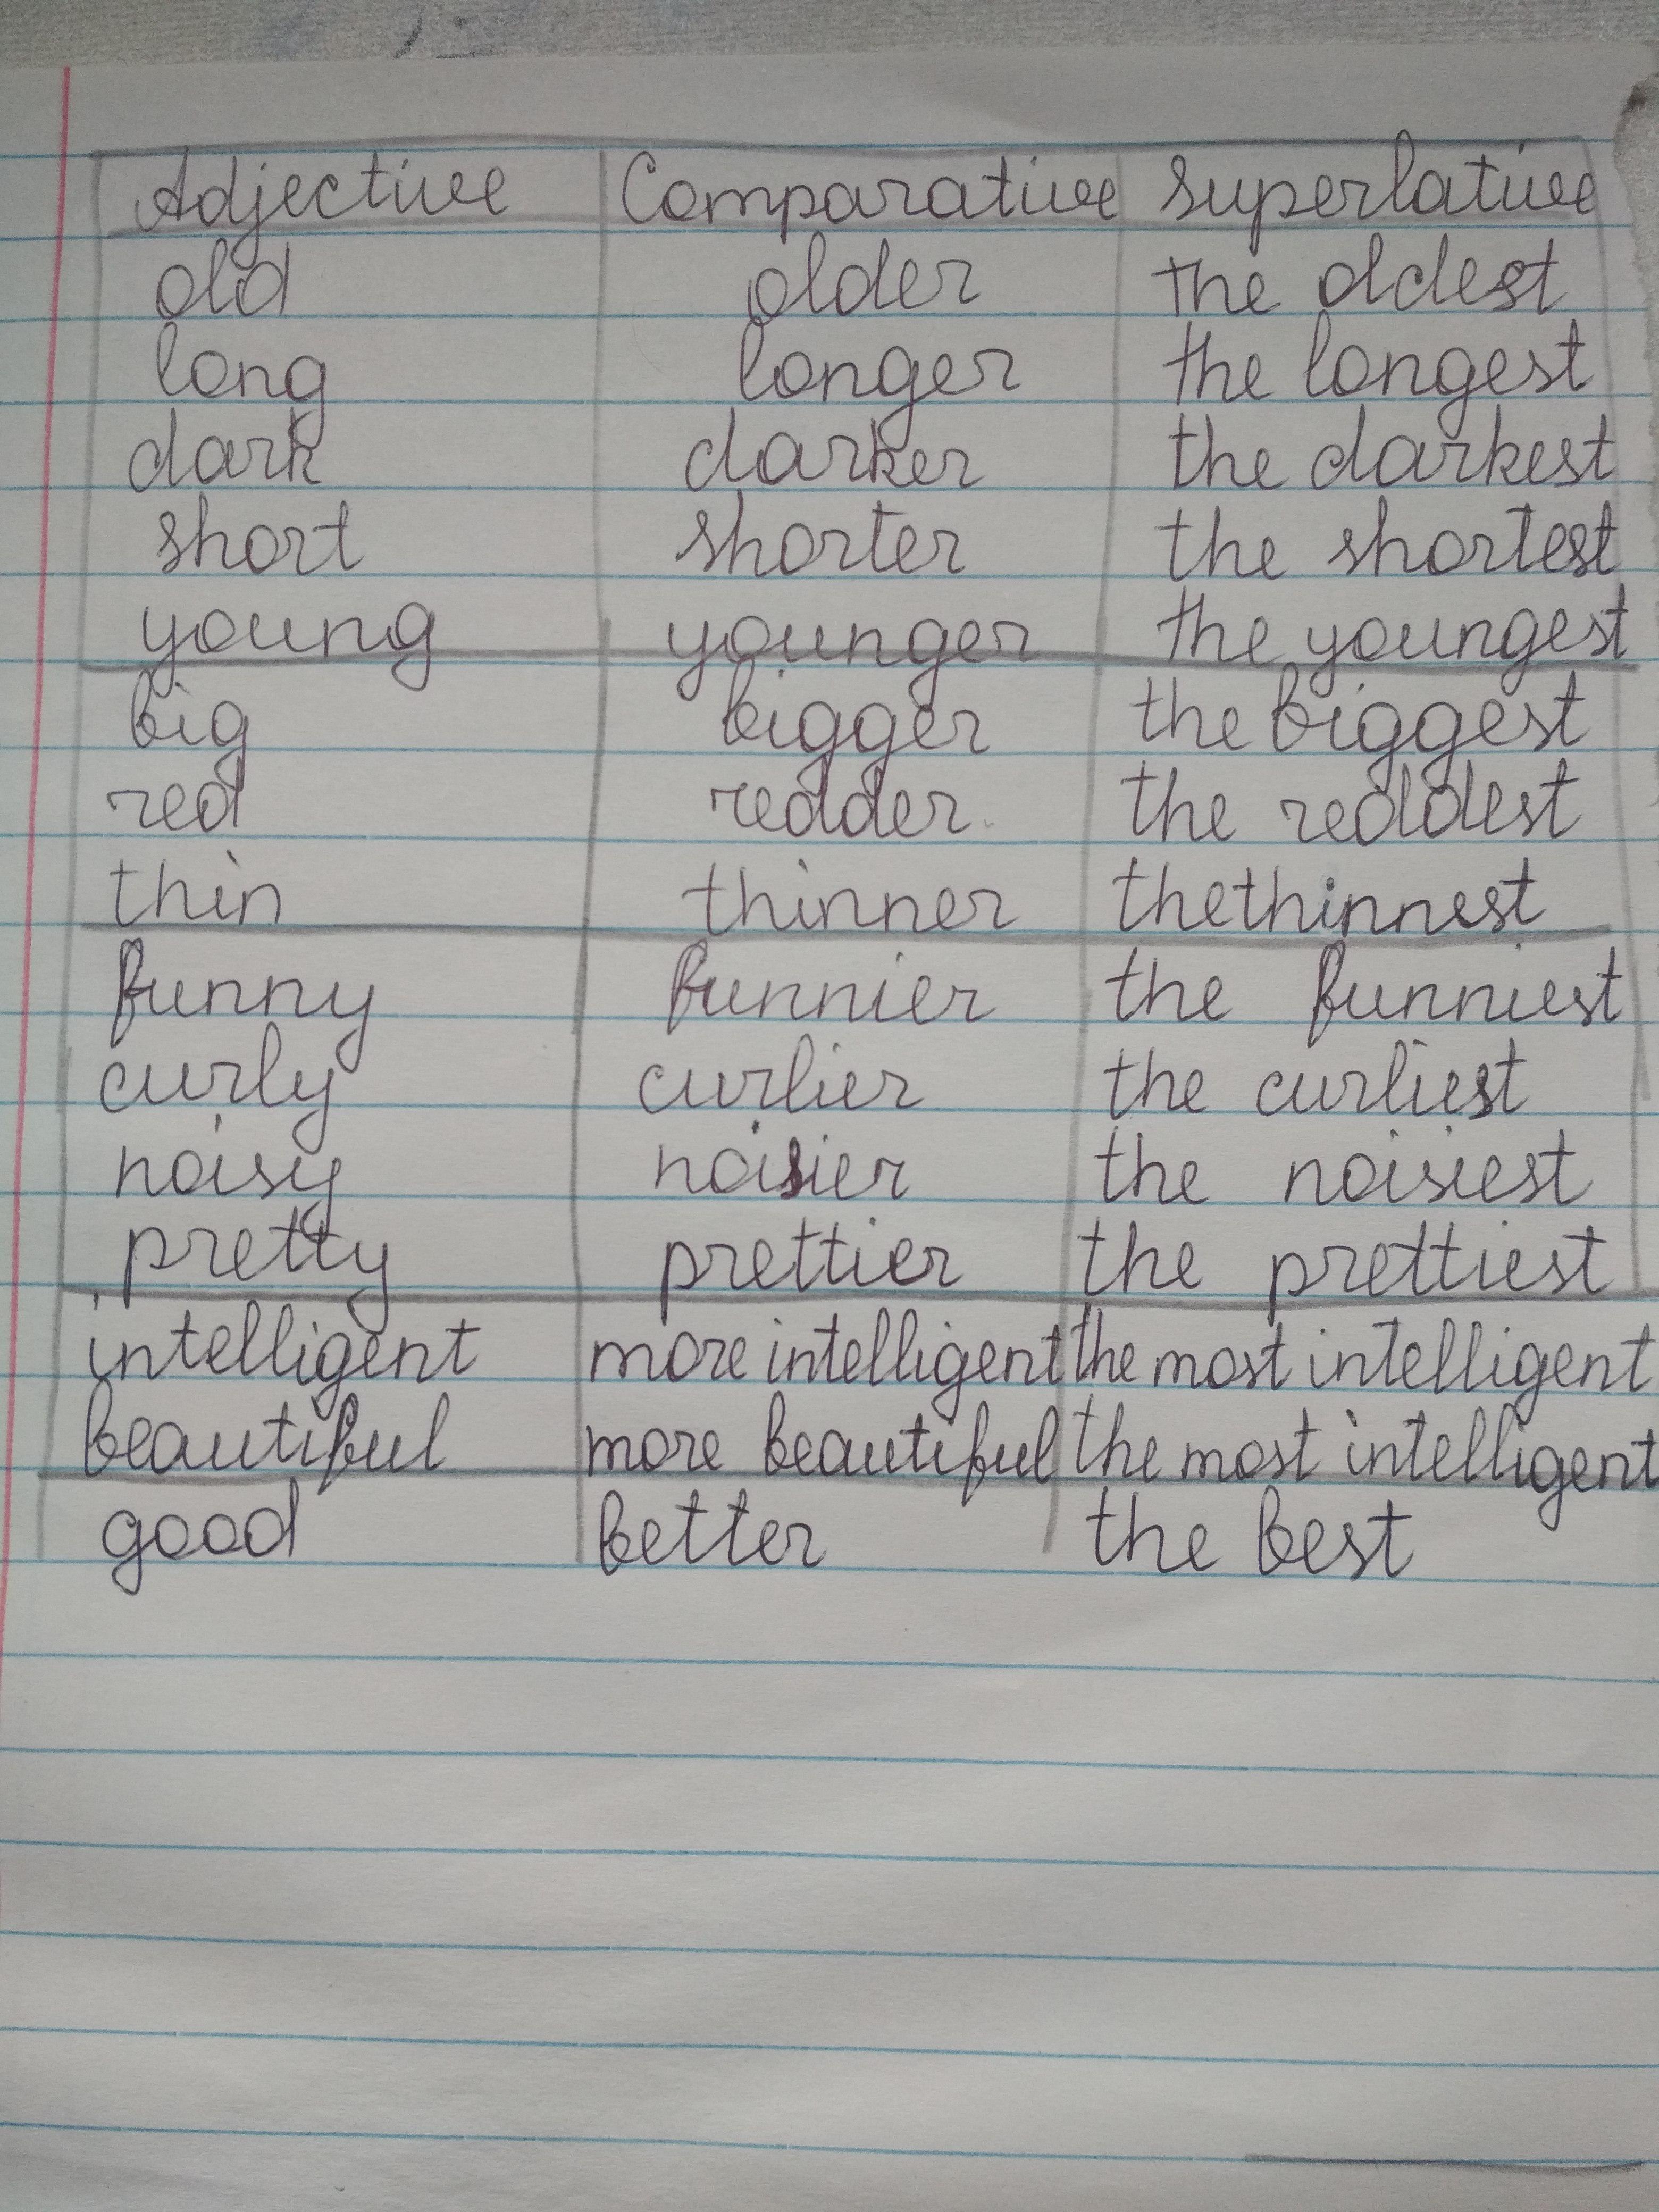 Adjective Comparative Superlative
old older the oldest
long longer the longest
dark darker the darkest
short shorter the shortest
young younger the youngest
big bigger the biggest
red redder the reddest
thin thinner thethinnest
funny funnier the funniest
curly curlier the curliest
noisy noisier the noisiest
pretty prettier the prettiest
intelligent more intelligent the most intelligent
beautiful more beautiful the most intelligent
good better the best